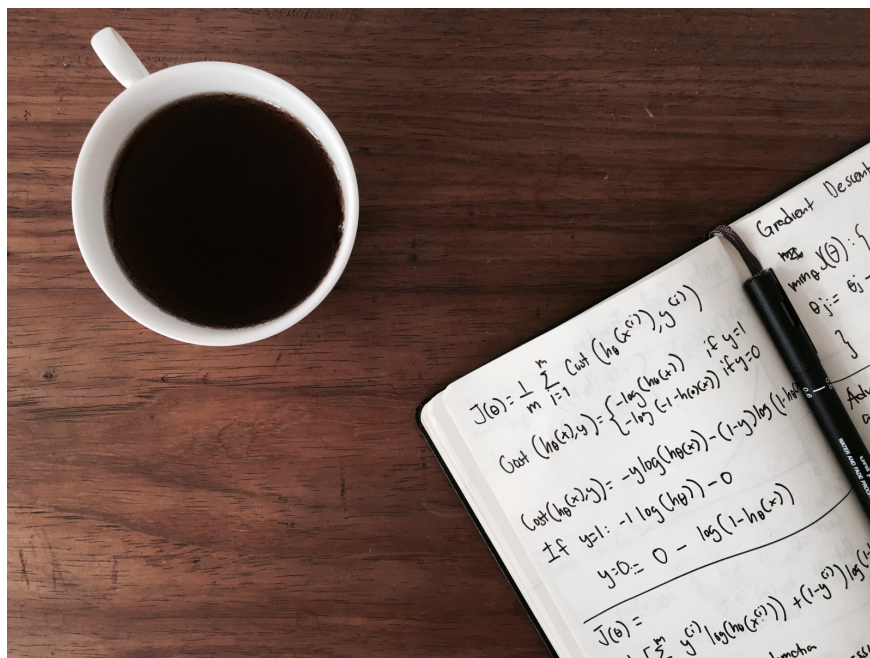 J(θ) = 1/m Σ_{i=1}^{m} Cost (hθ(x^(i)), y^(i))
Cost (hθ(x), y) = { -log(hθ(x)) if y=1
-log (-1-hθ(x)) if y=0
Cost(hθ(x), y) = -y log(hθ(x)) - (1-y) log (1-hθ
If y=1: -1 log(hθ)) - 0
y=0:= 0 - log(1-hθ(x))
J(θ) =
Σ^m y^(i) log(hθ(x^(i))) + (1-y^(i)) log(1-
Gradient Descent
minθ J(θ): {
θj := θj -
}
0.8
WATER AND FADE PROOF